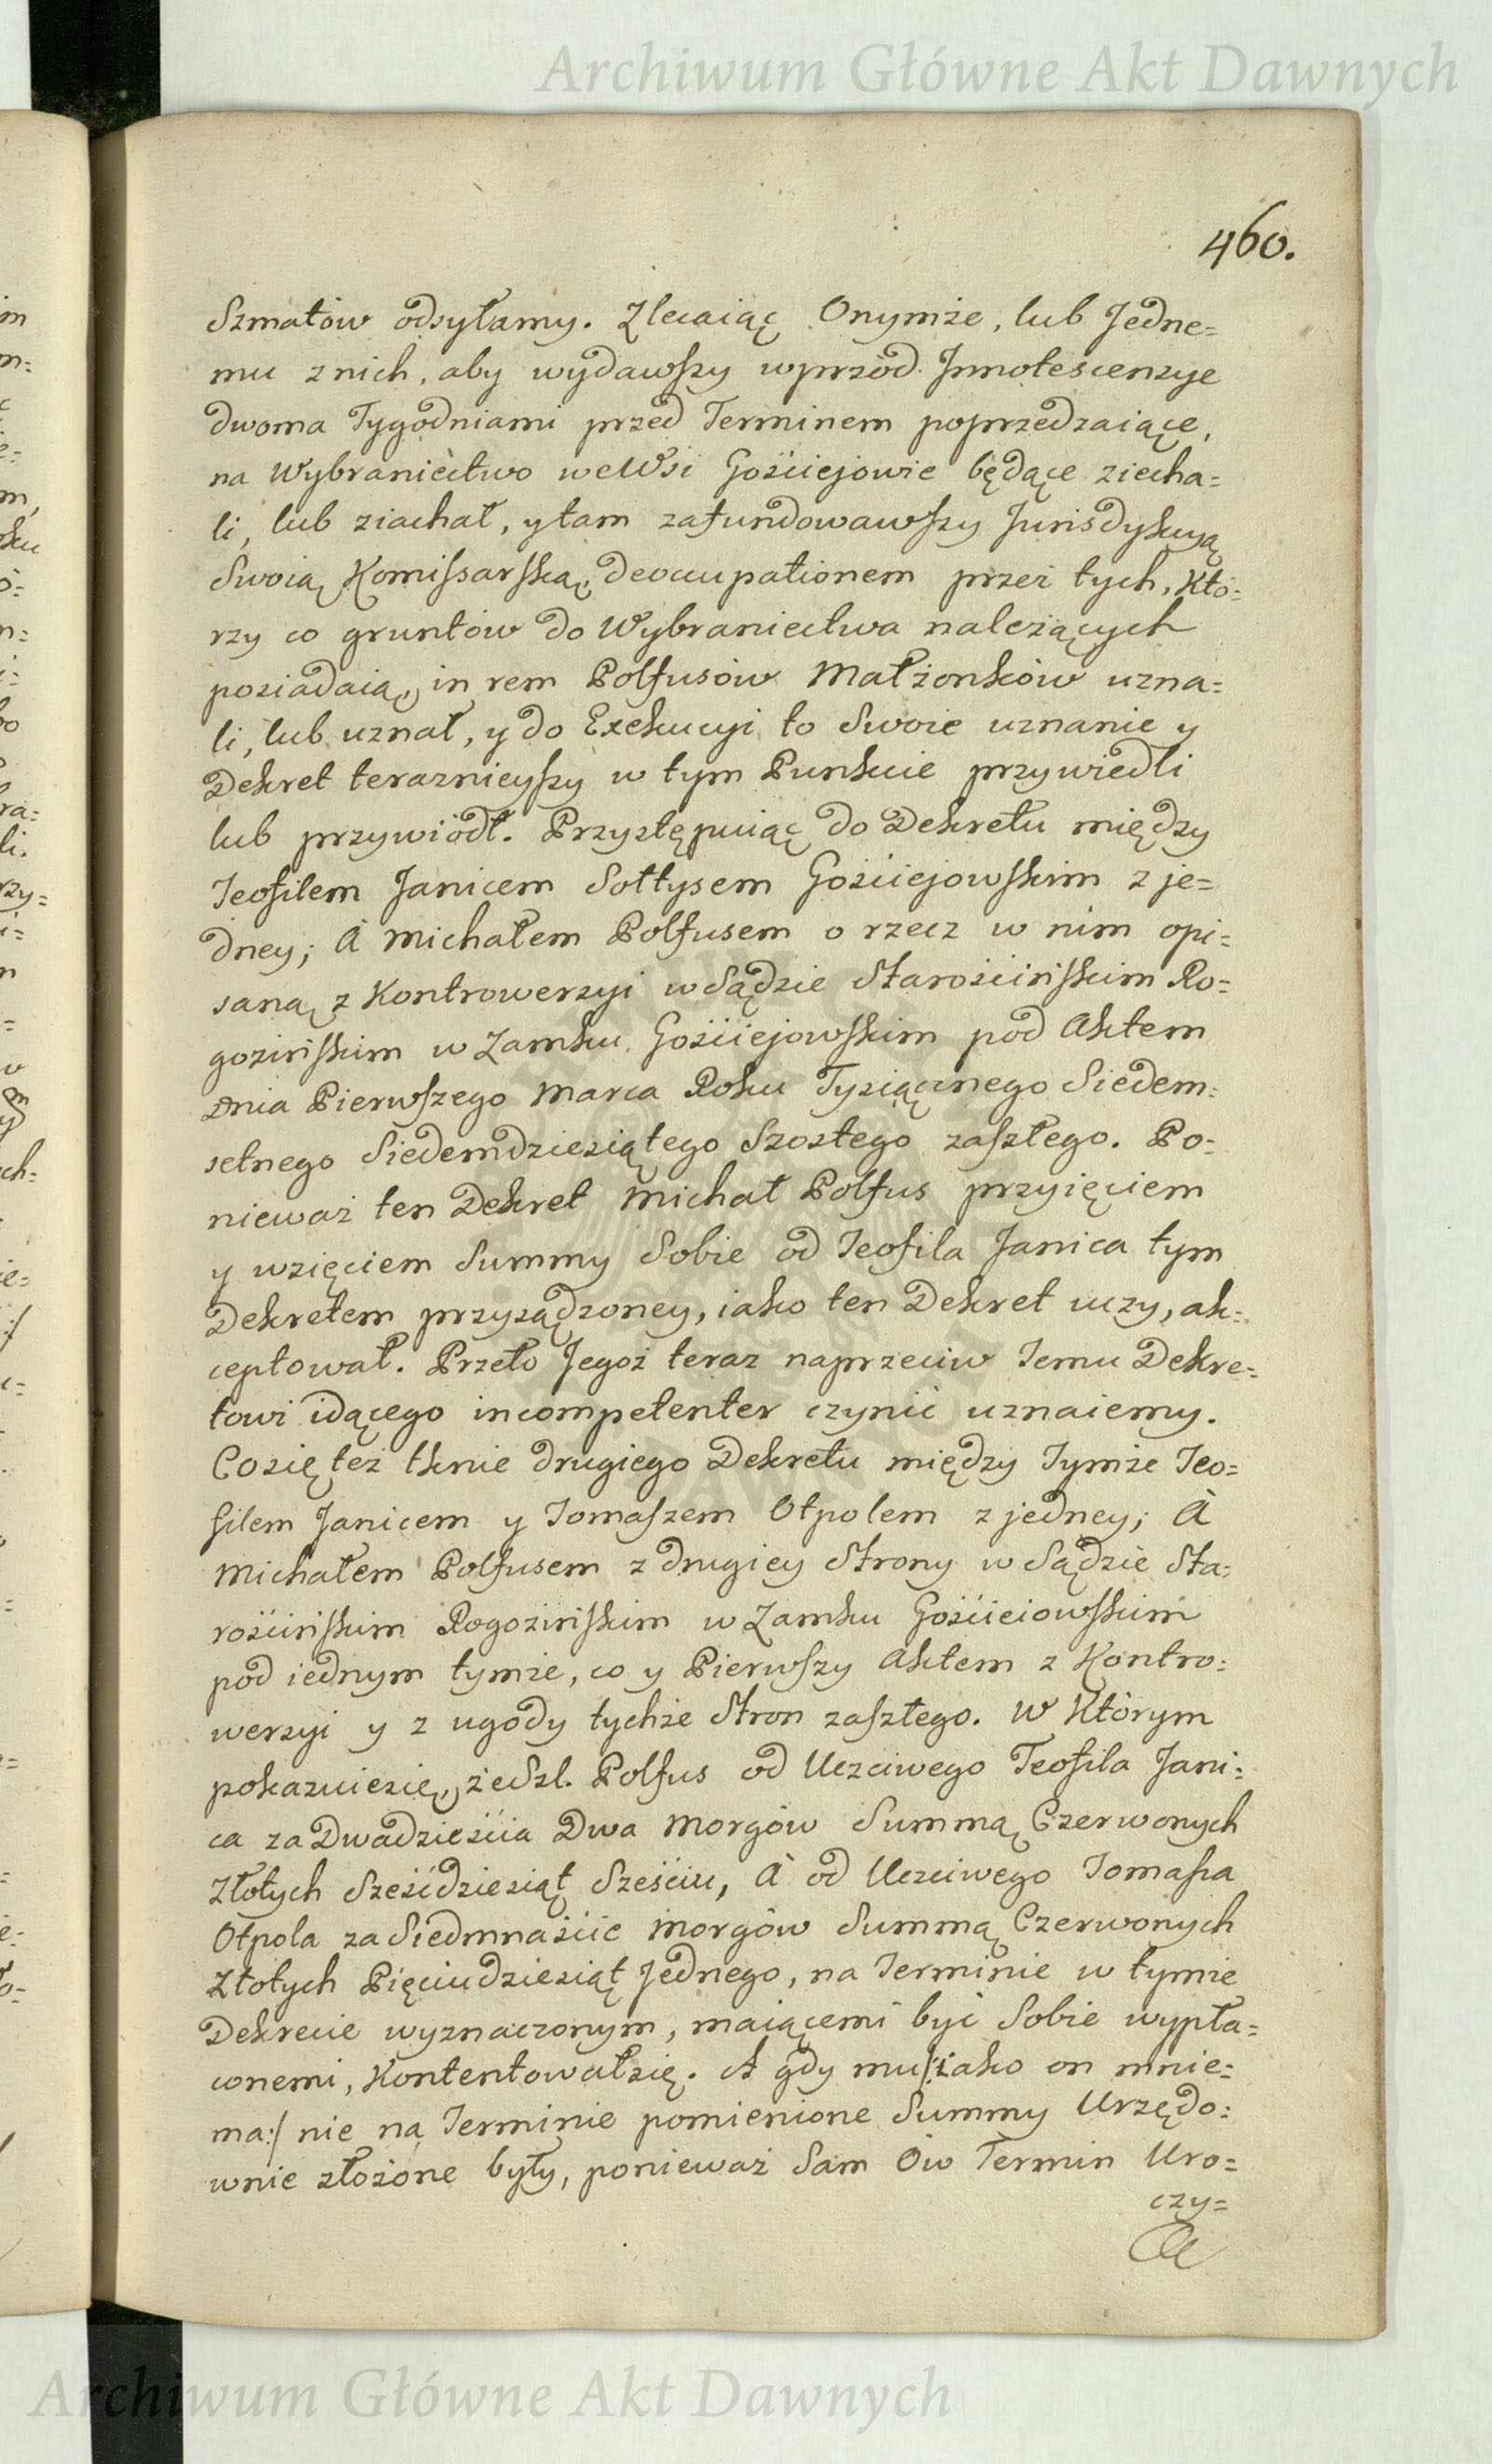 Archiwum Główne Akt Dawnych
460.
Szmatow odsyłamy. Zlecaiąc Onymże, lub Jedne=
mu z nich, aby wydawszy wprzód Innotescenzye
dwoma Tygodniami przed Terminem poprzedzaiące,
na Wybraniectwo we Wsi Gościejowie będące ziecha=
li, lub ziachał, y tam zafundowawszy Jurisdykcyą
Swoią Komissarską, deoccupationem przez tych, Któ=
rzy co gruntow do Wybraniectwa należących
posiadaią, in rem Polfusow Małżonkow uzna=
li, lub uznał, y do Exekucyi to Swoie uznanie y
Dekret teraznieyszy w tym Punkcie przywiedli
lub przywiodł. Przystępuiąc do Dekretu między
Teofilem Janicem Sołtysem Gościejowskim z je=
dney; A Michałem Polfusem o rzecz w nim opi=
saną z Kontrowerzyi w Sądzie Starościńskim Ro=
gozińskim w Zamku Gościejowskim pod Aktem
dnia Pierwszego Marca Roku Tysiącznego Siedem=
setnego Siedemdziesiątego Szostego zaszłego. Po=
nieważ ten Dekret Michał Polfus przyięciem
y wzięciem Summy Sobie od Teofila Janica tym
Dekretem przysądzoney, iako ten Dekret uczy, ak=
ceptował. Przeto Jegoż teraz naprzeciw Temu Dekre=
towi idącego incompetenter czynić uznaiemy.
Co się też tknie drugiego Dekretu między Tymże Teo=
filem Janicem y Tomaszem Otpolem z jedney; A
Michałem Polfusem z drugiey Strony w Sądzie Sta=
rościńskim Rogozińskim w Zamku Gościeiowskim
pod iednym tymże, co y Pierwszy Aktem z Kontro=
werzyi y z ugody tychże Stron zaszłego. W Którym
pokazuie się, że Szl. Polfus od Uczciwego Teofila Jani=
ca za Dwadzieścia Dwa Morgów Summą Czerwonych
Złotych Sześćdziesiąt Sześciu, A od Uczciwego Tomasza
Otpola za Siedmnaście Morgów Summą Czerwonych
Złotych Pięciudziesiąt Jednego, na Terminie w tymże
Dekrecie wyznaczonym, maiącemi być Sobie wypła=
conemi, Kontentował się. A gdy mu /: iako on mnie=
ma :/ nie na Terminie pomienione Summy Urzędo=
wnie złożone były, ponieważ Sam Ów Termin Uro=
czy=
Archiwum Główne Akt Dawnych